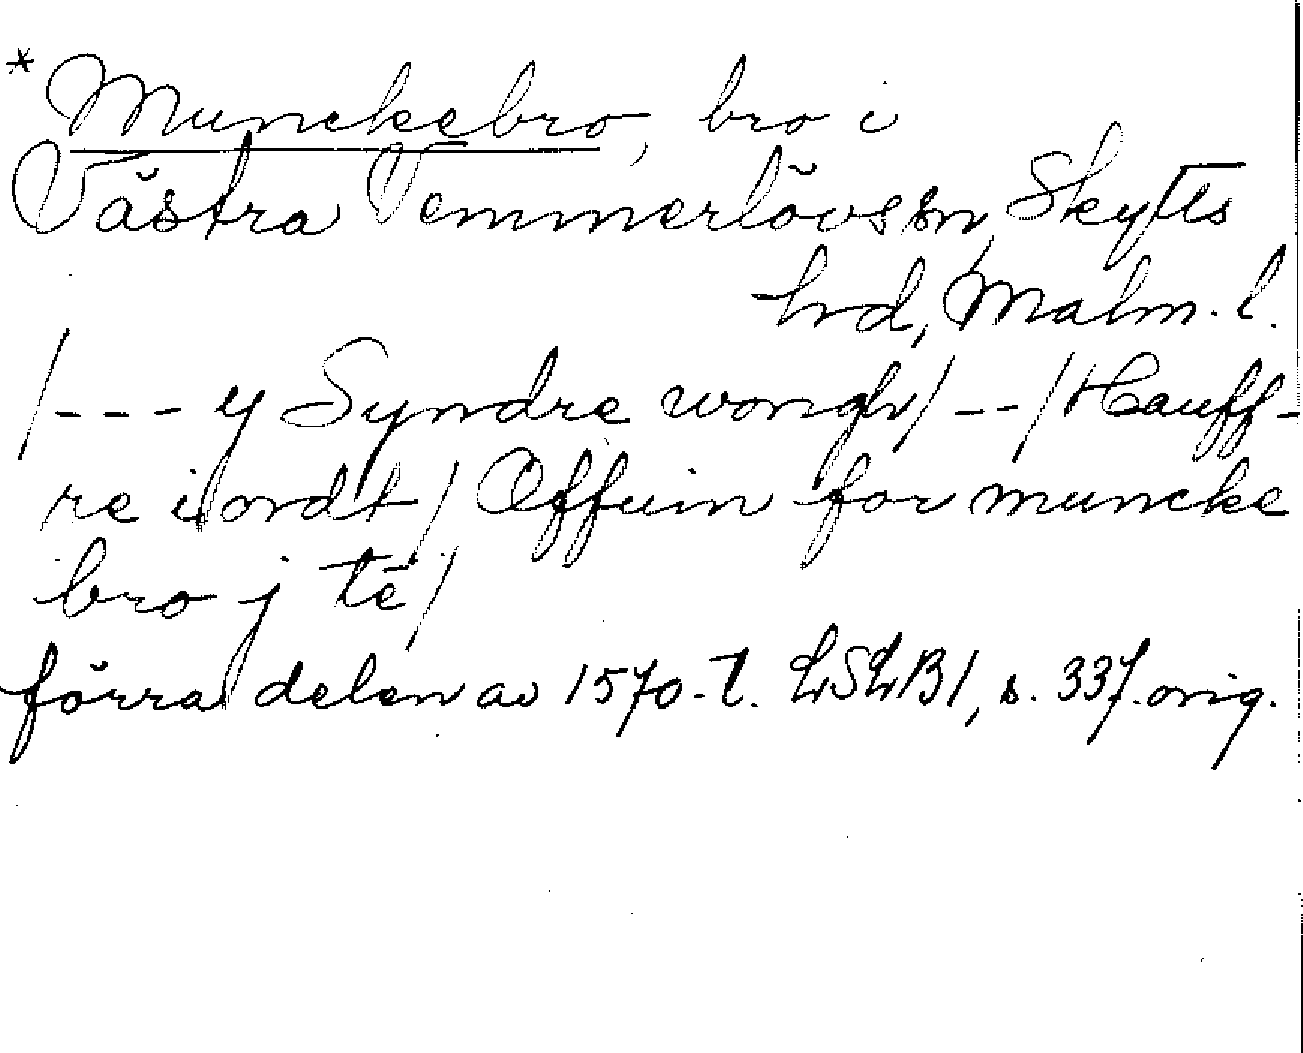 * Munckebro, bro i
Västra Vemmerlövs sn, Skytts
hd, Malm. l.
/--- y Syndre wongh/ -- / Hauff-
re iordt / Offuin for muncke
bro j tē /
förra delen av 1570-t. LSLB1, s. 337. orig.